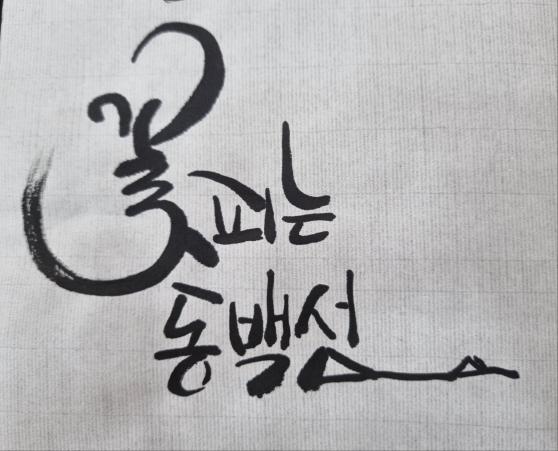 꽃피는
동백섬